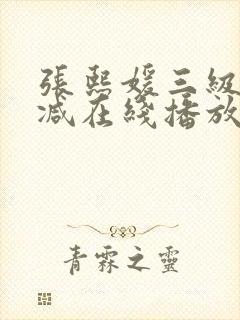 張熙媛三級
減在綫播放
青霖之靈